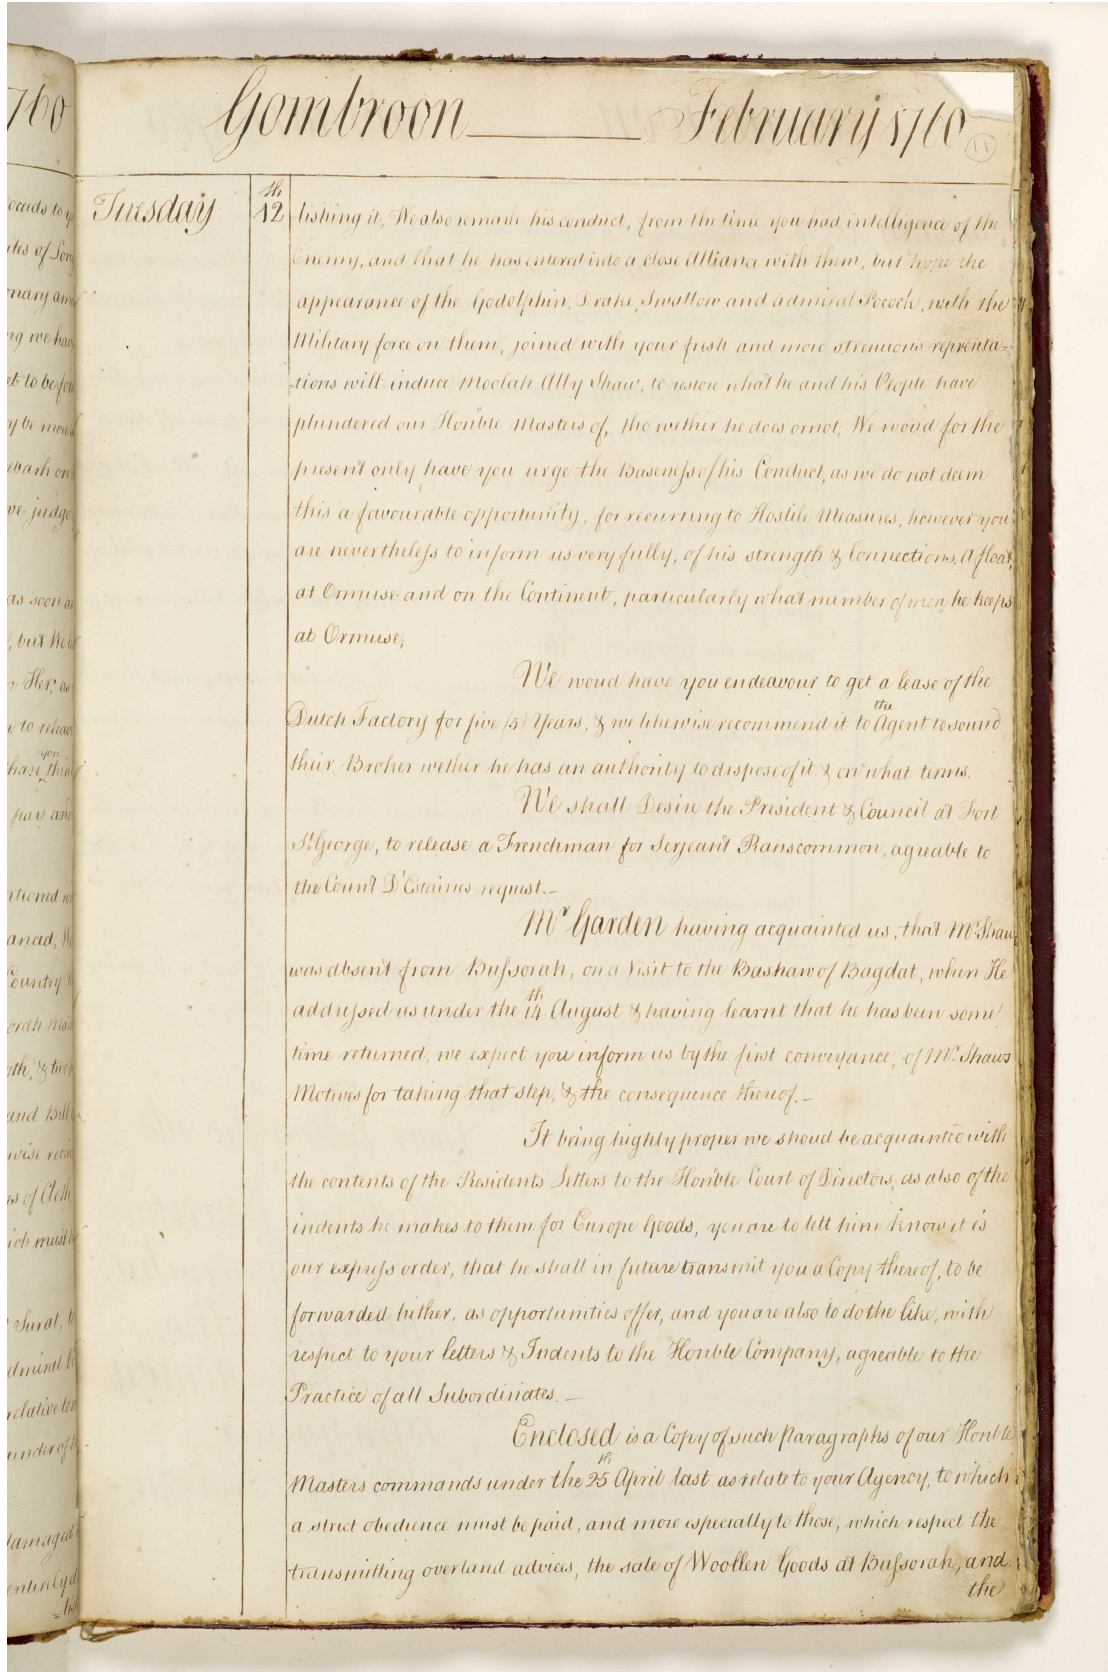 Gombroon February 1760
11
Tuesday 12th
lishing it, We also remark his conduct, from the time you had intelligence of the
Enemy, and that he has entered into a close Alliance with them, but hope the
appearance of the Godolphin, Drake, Swallow and Admiral Pocock, with the
Military force on them, joined with your fresh and more strenuous represénta=
=tions will induce Moolah Ally Shaw, to restore what he and his People have
plundered our Hon'ble Masters of, tho wether he does or not, We woud for the
present only have you urge the Baseness of his Conduct, as we do not deem
this a favourable opportunity, for recurring to Hostile Measures, however you
are nevertheless to inform us very fully, of his strength & Connections, A float,
at Ormuse and on the Continent, particularly what number of men he keeps
at Ormuse;
We woud have you endeavour to get a lease of the
Dutch Factory for five (5) Years, & we likewise recommend it to the Agent to sound
their Broker wether he has an authority to dispose of it & on what terms.
We shall Desire the President & Council at Fort
St. George, to release a Frenchman for Serjeant Ranscommon, agreable to
the Count D'Estaines request. -
Mr Garden having acquainted us, that Mr. Shaw
was absent from Bussorah, on a Visit to the Bashaw of Bagdat, when He
addressed us under the 14th August & having learnt that he has been some
time returned, we expect you inform us by the first conveyance, of Mr. Shaws
Motives for taking that step, & the consequence thereof. -
It being highly proper we shoud be acquainted with
the contents of the Residents Letters to the Hon'ble Court of Directors, as also of the
indents he makes to them for Europe Goods, you are to lett him know it is
our express order, that he shall in future transmit you a Copy thereof, to be
forwarded hither, as opportunities offer, and you are also to do the like, with
respect to your letters & Indents to the Honble Company, agreable to the
Practice of all Subordinates. -
Enclosed is a Copy of such Paragraphs of our Honble
Masters commands under the 25th April last as relate to your Agency, to which
a strict obedience must be paid, and more especially to those, which respect the
transmitting overland advices, the sale of Woollen Goods at Bussorah, and
the